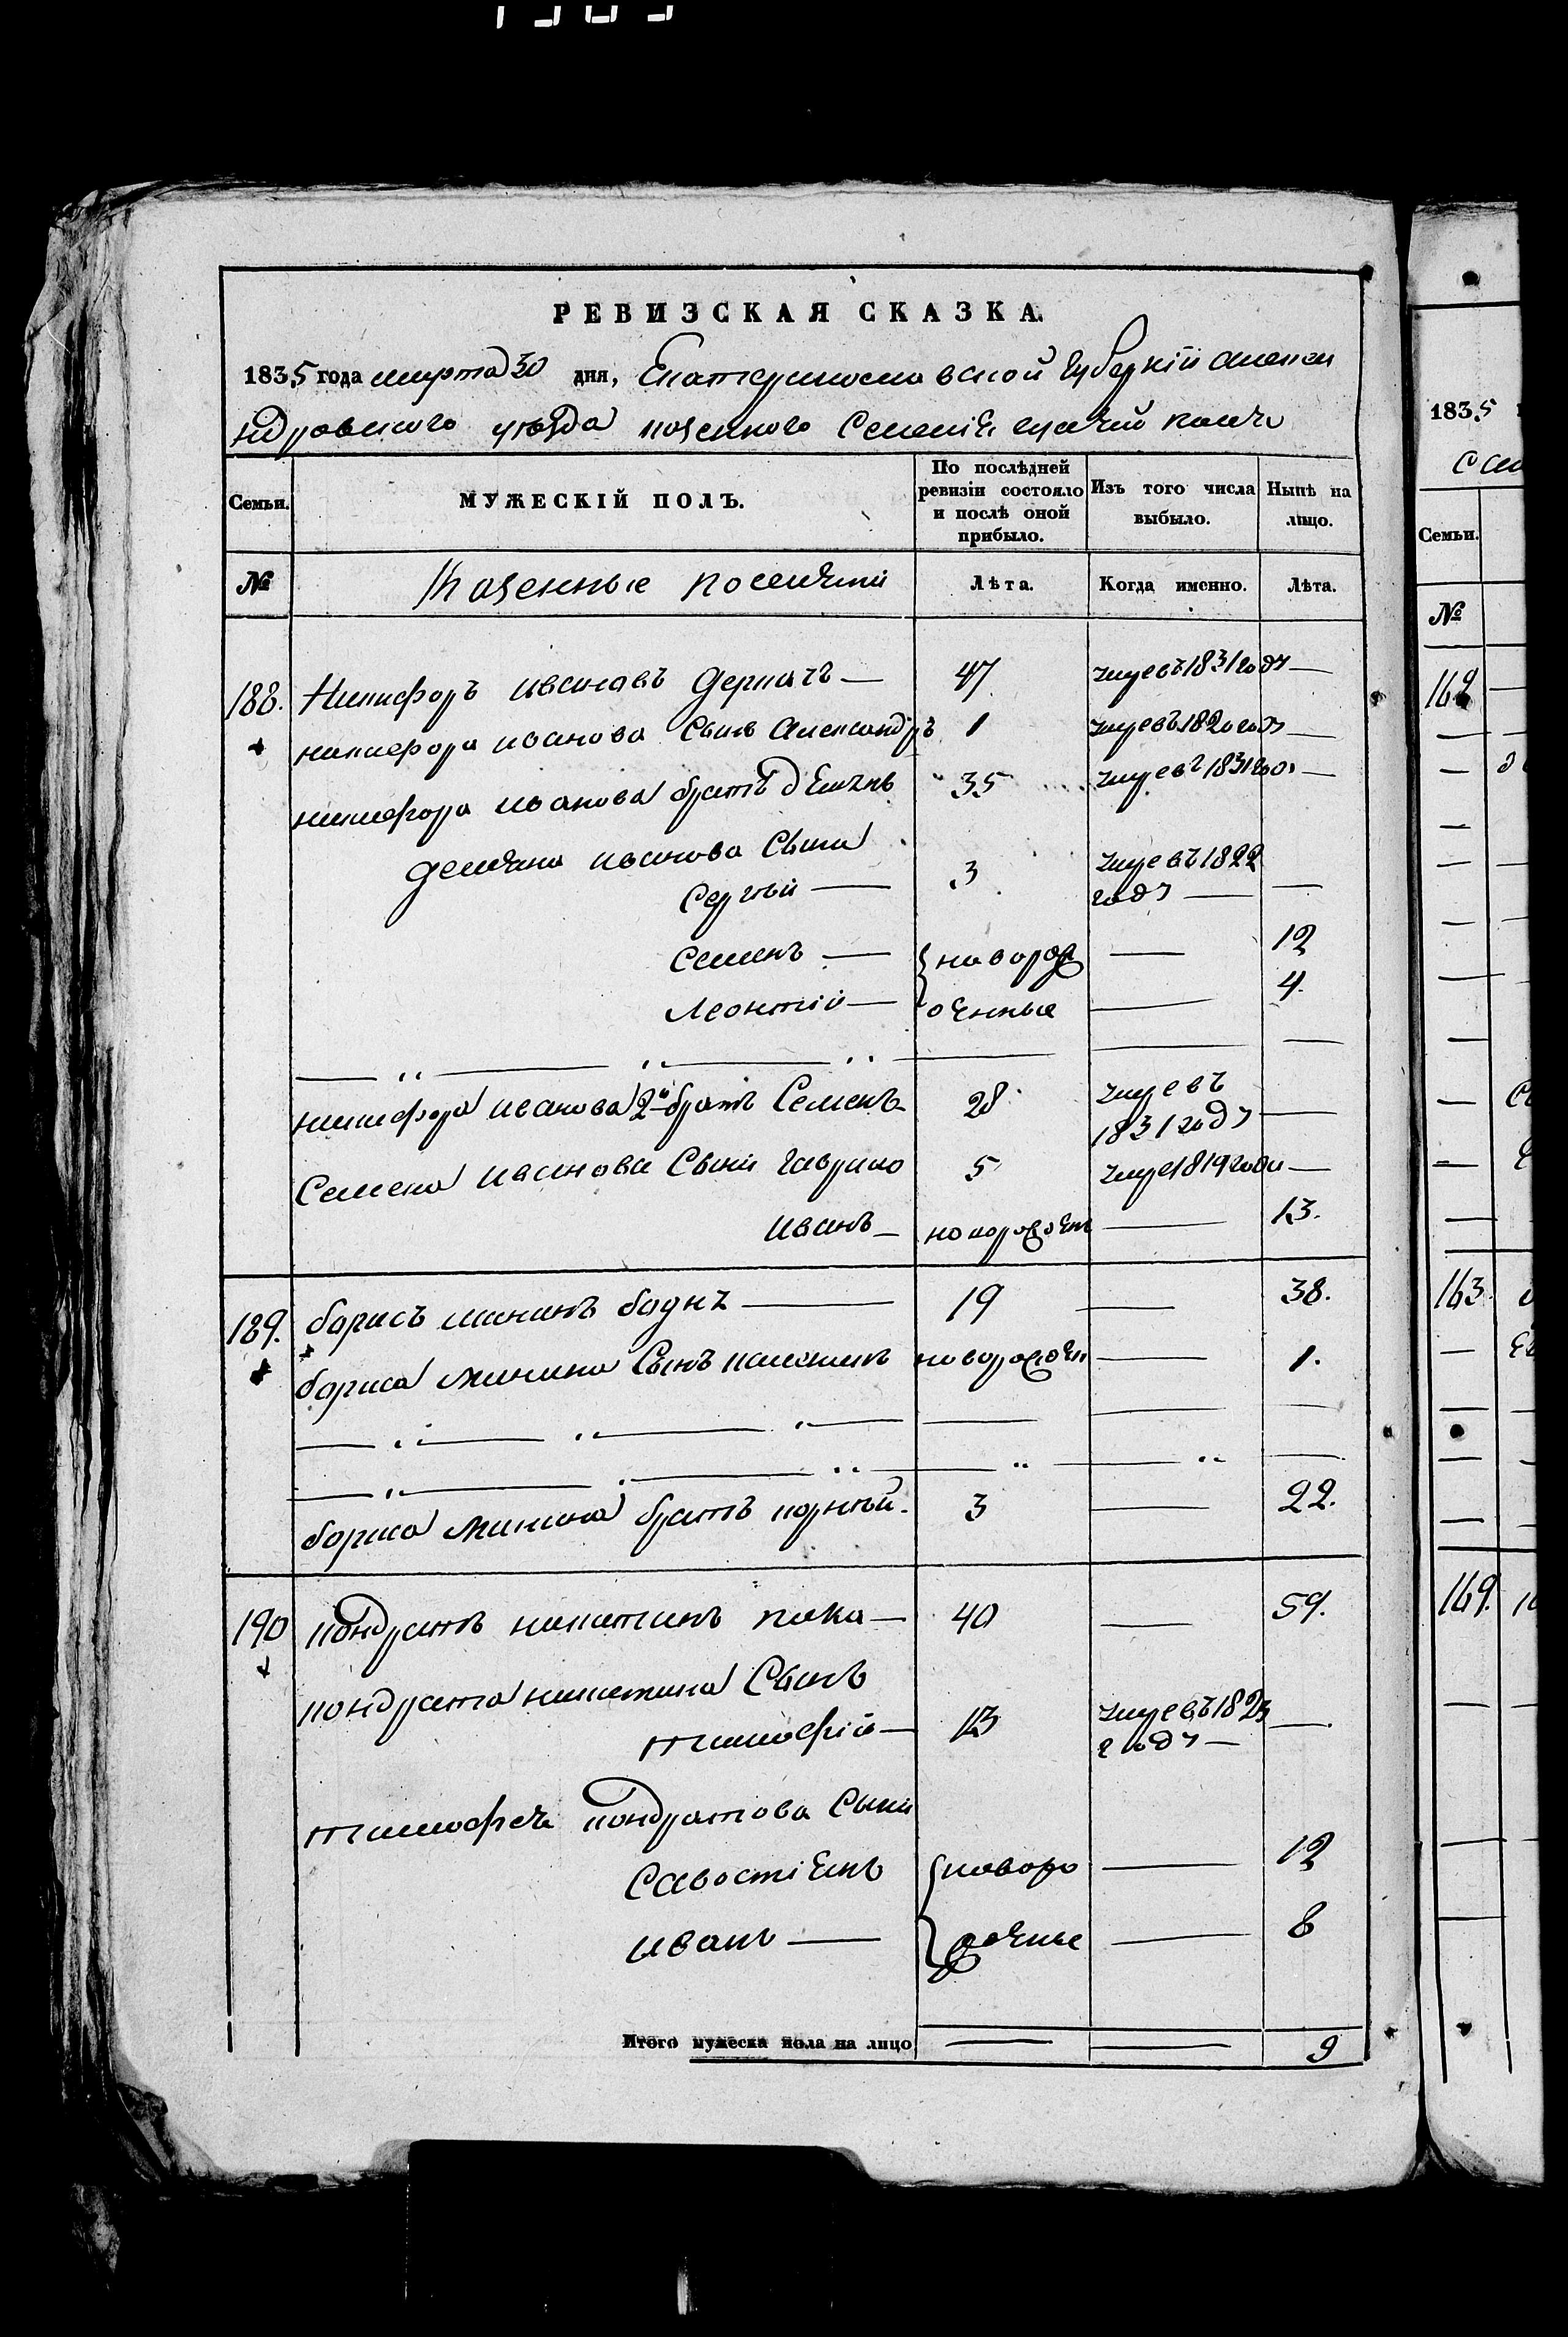 РЕВИЗСКАЯ СКАЗКА.
1835 года марта 30 дня, Екатеринославской губернии алексан
ндровского уезда казенного Селения
Семьи. МУЖЕСКІЙ ПОЛЪ. По послѣдней ревизіи состояло и послѣ оной прибыло. Изъ того числа выбыло. Нынѣ на лицо.
№ Казенные поселяни Лѣта. Когда именно. Лѣта.
188. Никифоръ ивановъ деркачъ — 47 умре въ 1831 году —
никифора иванова Сынъ александръ 1 умре въ 1820 году —
никифора иванова братъ демянъ 35 умре въ 1831 году —
демяна иванова Сыни
Сергѣй — 3 умре въ 1822
году — —
Семенъ — новорож — 12
Леонтій — денные — 4.
никифора иванова 2й братъ Семенъ 28 умре въ
1831 году —
Семена иванова Сыни гаврило 5 умре 1819 году —
иванъ — новорожден — 13.
189. борисъ мининъ — 19 — 38.
бориса минина Сынъ новорожден — 1.
бориса минина братъ корнѣй. 3 — 22.
190 кондратъ никитинъ кока — 40 — 59.
кондрата никитина Сынъ
тимофій — 13 умре въ 1825
году — —
тимофея кондратова Сыни
Савостіянъ новоро — 12
иванъ — жденые — 8
Итого мужеска пола на лицо — — 9
1835
Семьи.
№
162
163.
164.